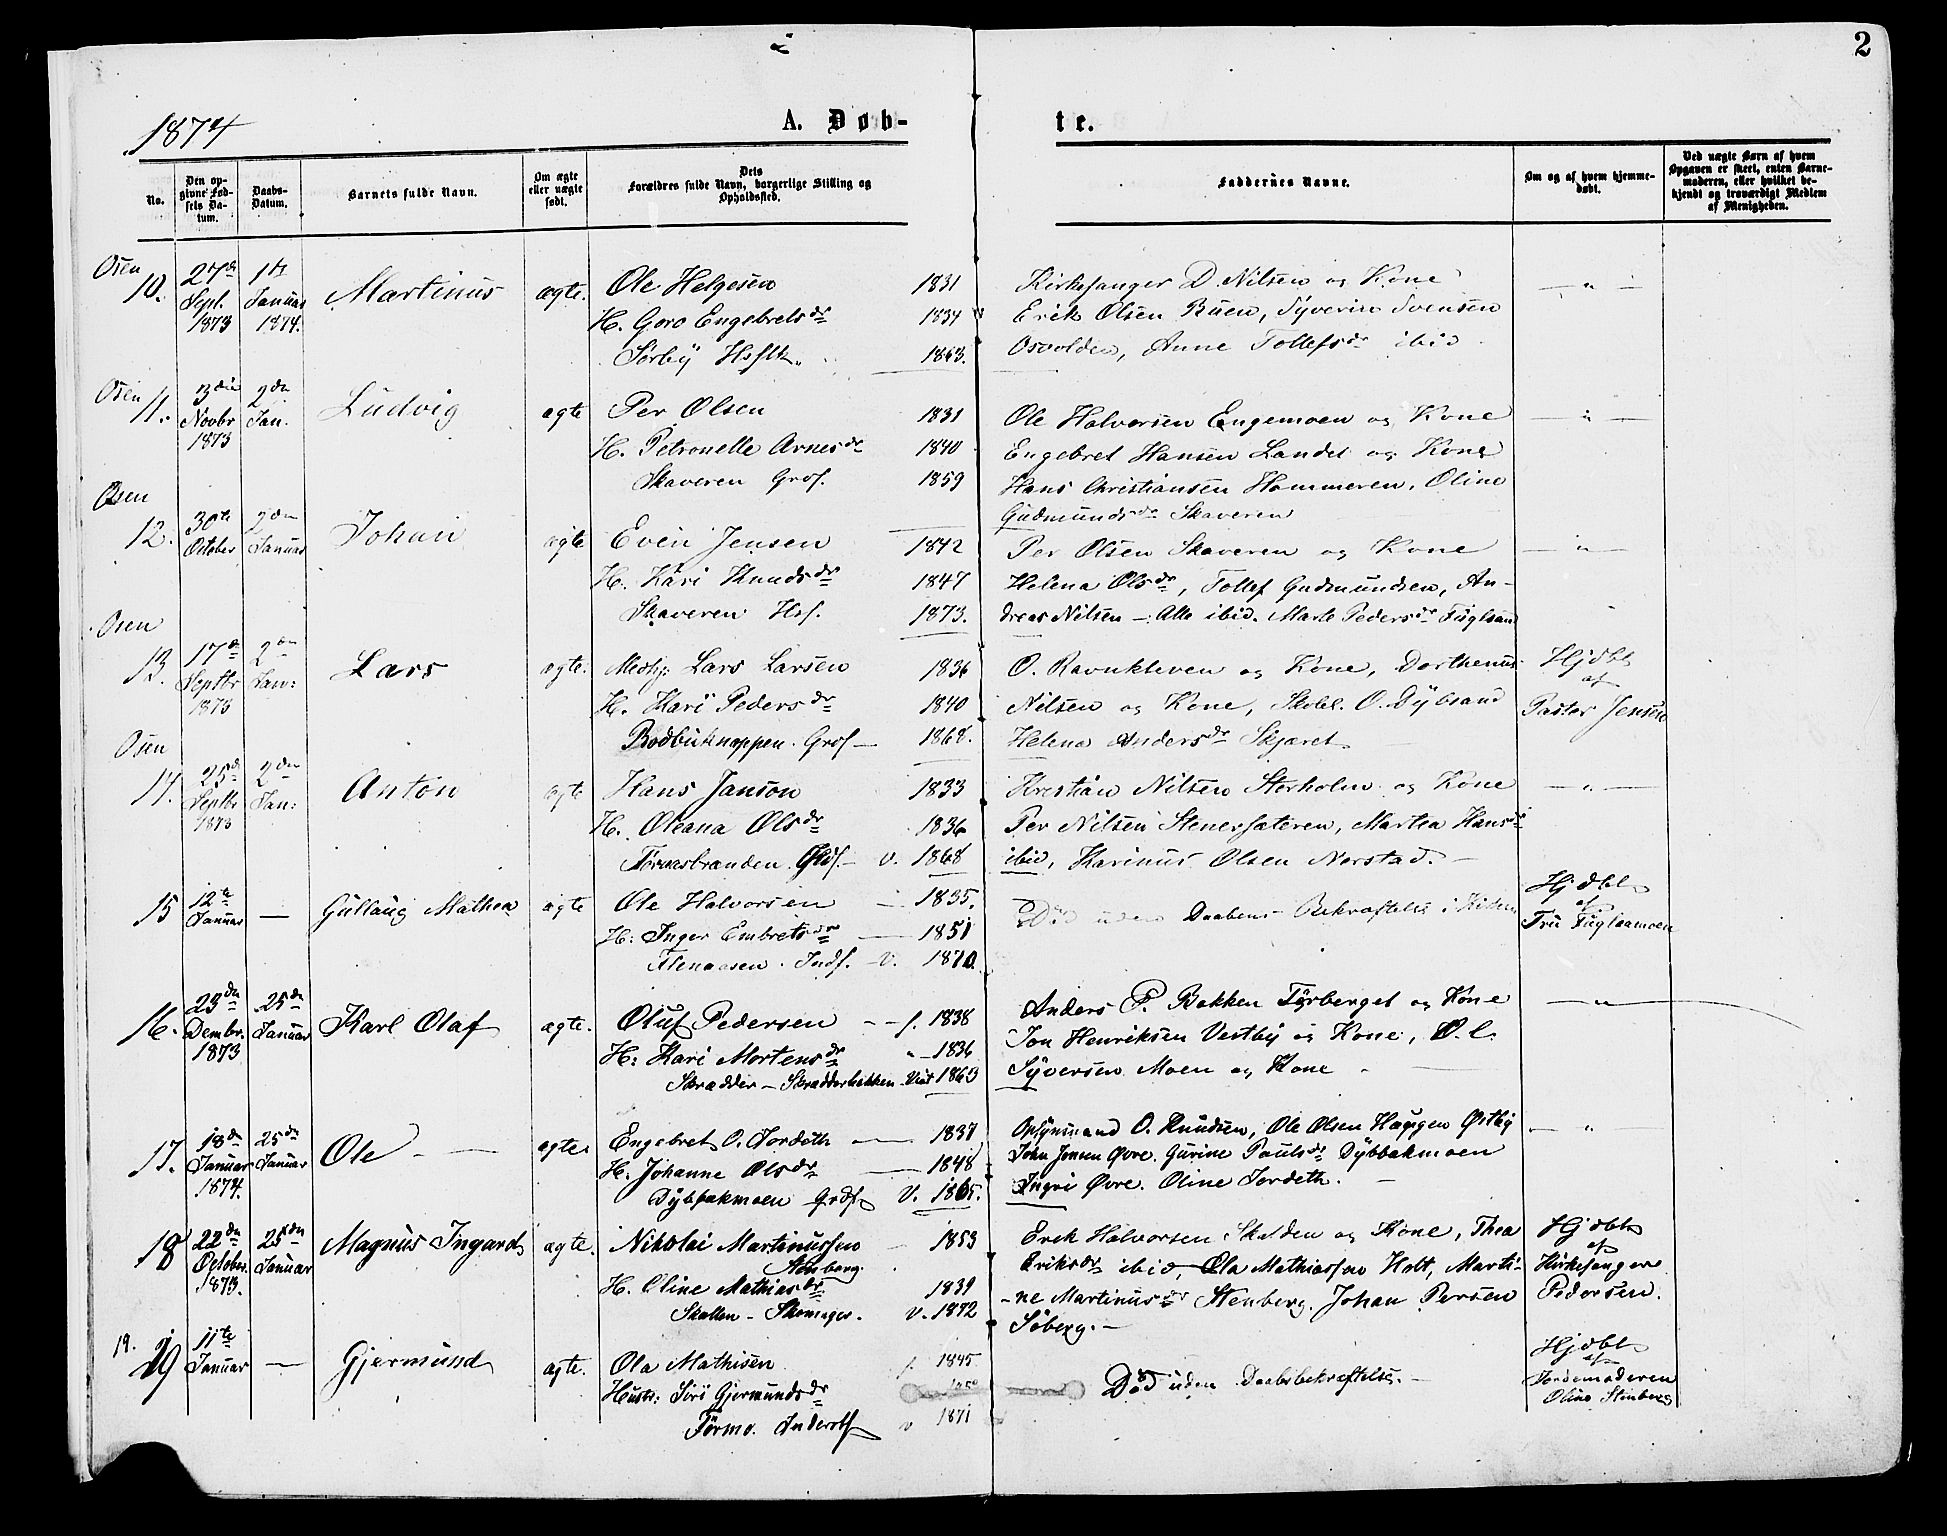 2
1874
A. Døb-
te.
No.
Den opgivne Fødsels Datum.
Daabs-Datum.
Barnets fulde Navn.
Om ægte eller uægte født.
Dets Forældres fulde Navn, borgerlige Stilling og Opholdssted.
Faddernes Navne.
Om og af hvem hjemmedøbt.
Ved uægte Børn af hvem Opgaven er skeet, enten Barnemoderen, eller hvilket bekjendt og troværdigt Medlem af Menigheden.
Osen
10. 27de Sept. 1873 1ste Januar 1874. Martinus ægte. Ole Helgesen 1831 Kirkesanger D. Nilsen og Kone — " —
H. Goro Engebretsdr 1834 Erik Olsen Ruen, Syverin Svensen
Sørby 1863. Osvolden, Anne Tollefsdr ibid
Osen
11. 3die Novbr 1873 2den Jan. Ludvig ægte Per Olsen 1831 Ole Halvorsen Engemoen og Kone — " —
H. Petronelle Arnesdr 1840 Engebret Hansen Landet og Kone
Skaveren Grdf. 1859 Hans Christiansen Hammeren, Oline
Gudmundsdr Skaveren
Osen
12. 30te October 2den Januar Johan ægte Even Jensen 1842 Per Olsen Skaveren og Kone — " —
H. Kari Knudsdr 1847 Helena Olsdr, Tollef Gudmundsen, An-
Skaveren Hsf. 1873. dreas Nilsen — Alle ibid. Marte Pedersdr Fuglsand
Osen
13. 17de Septbr 1873 2den Jan: Lars ægte. Lars Larsen 1836 O. Ravnkleven og Kone, Dorthenus Hjdbt af
H. Kari Pedersdr 1840 Nilsen og Kone, O. Dybsand Pastor Jensen
Grdf — 1868. Helena Andersdr Skjæret
Osen
14. 25de Septbr 1873 2den Jan: Anton ægte Hans Janson 1833 Kristian Nilsen Storholm og Kone — " —
H. Oleana Olsdr 1836 Per Nilsen Stenersæteren, Martea Hansdr
V. 1868 ibid, Karinus Olsen Norstad. —
15 12te Januar — Gullaug Mathea ægte Ole Halvorsen — 1835. Død uden Daabens Bekræftelse i Kirken Hjdbt af
H: Inger Embretsdr — 1851 Fru Fuglaamoen
Indf. — V. 1870.
16. 23de Dembr. 1873 25de Januar Karl Olaf ægte. Oluf Pedersen — f. 1838 Anders P. Bakken Tyrberget og Kone — " —
H: Kari Mortensdr " — 1836 Jon Henriksen Vestby og Kone, O. L.
Skrædder — Skrædderbakken Viet 1863 Syversen Moen og Kone
17. 18de Januar 1874. 25de Januar Ole — ægte. Engebret O. Jordeth — 1837 Opsynsmand O. Knudsen, Ole Olsen Haggen Østby — " —
H. Johanne Olsdr — 1848 John Jonsen Øvre. Gurine Paulsdr Dybbakmoen
Dybbakmoen Grdf V. 1865. Ingri Øvre. Oline Jordeth. —
18 22de October 1873. 25de Januar Magnus Ingvard ægte. Nikolai Martinussen Stenberg — 1853 Erik Halvorsen Skalden og Kone, Thea Hjdbt af
H. Oline Mathiasdr 1839 Eriksdr ibid, Ola Mathiassen Holt, Marti- Kirkesanger
Skomager. V. 1872 -ne Martinusdr Stenberg. Johan Persen Pedersen.
Søberg. —
19. 19 11te Januar — Gjermund ægte. Ola Mathisen f. 1845 Død uden Daabsbekræftelse. — Hjdbt af
Hustr: Siri Gjermundsdr 1850 Jordemoderen
Tørmo. Inderst v 1871 Oline Stenberg